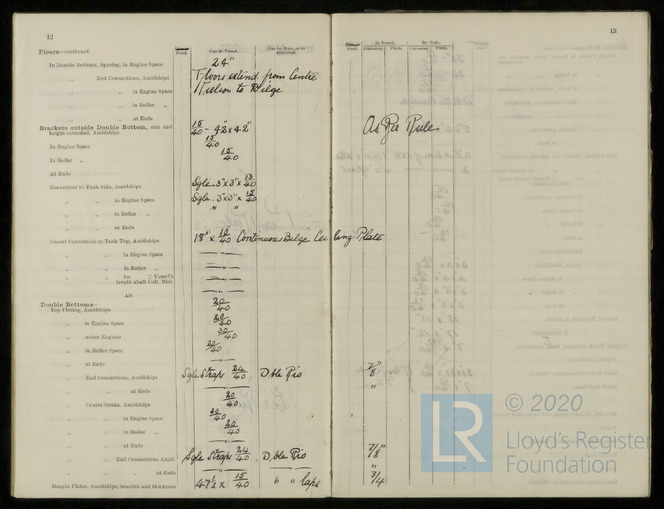 12
Floors—continued.
In Double Bottoms, Spacing, in Engine Space 24"
" End Connections, Amidships Floors extend from Centre
" " in Engine Space Keelson to Bilge
" " in Boiler "
" " at Ends
Brackets outside Double Bottom, size and
height extended, Amidships 15/40 - 42 x 42"
In Engine Space 15/40
In Boiler " 15/40
At Ends
Connection to Tank Side, Amidships Sgle. 3" x 3" x 15/40
" " in Engine Space Sgle. 3" x 3" x 15/40
" " in Boiler " " "
" " at Ends
Gusset Connection to Tank Top, Amidships 18" x 15/40 Continuous Bilge Ceiling Plate
" " in Engine Space
" " in Boiler "
" " for Vessel's
length abaft Coll. Bhd.
Aft
Double Bottoms—
Top Plating, Amidships 20/40
" in Engine Space 20/40
" under Engines 20/40
" in Boiler Space 20/40
" at Ends
" End Connections, Amidships Sgle Straps 24/40 Dble Riv
" " at Ends
" Centre Strake, Amidships 20/40
" " in Engine Space 20/40
" " in Boiler " 20/40
" " at Ends
" End Connections Amid. Sgle Straps 24/40 Dble Riv
" " at Ends
Margin Plates, Amidships, breadth and thickness 47½ x 15/40 " " laps
13
In Vessel.
Diameter. Pitch.
Per Rule.
Diameter. Pitch.
As Per Rule
7/8"
"
7/8"
"
3/4
LR
© 2020
Lloyd's Register
Foundation